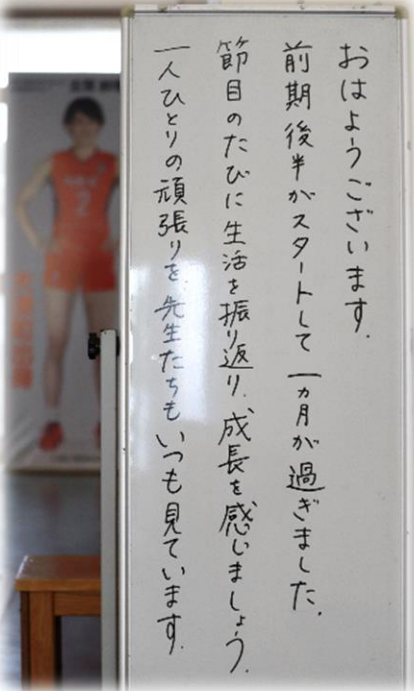 おはようございます.
前期後半がスタートして一カ月が過ぎました.
節目のたびに生活を振り返り、成長を感じましょう.
一人ひとりの頑張りを、先生たちもいつも見ています.